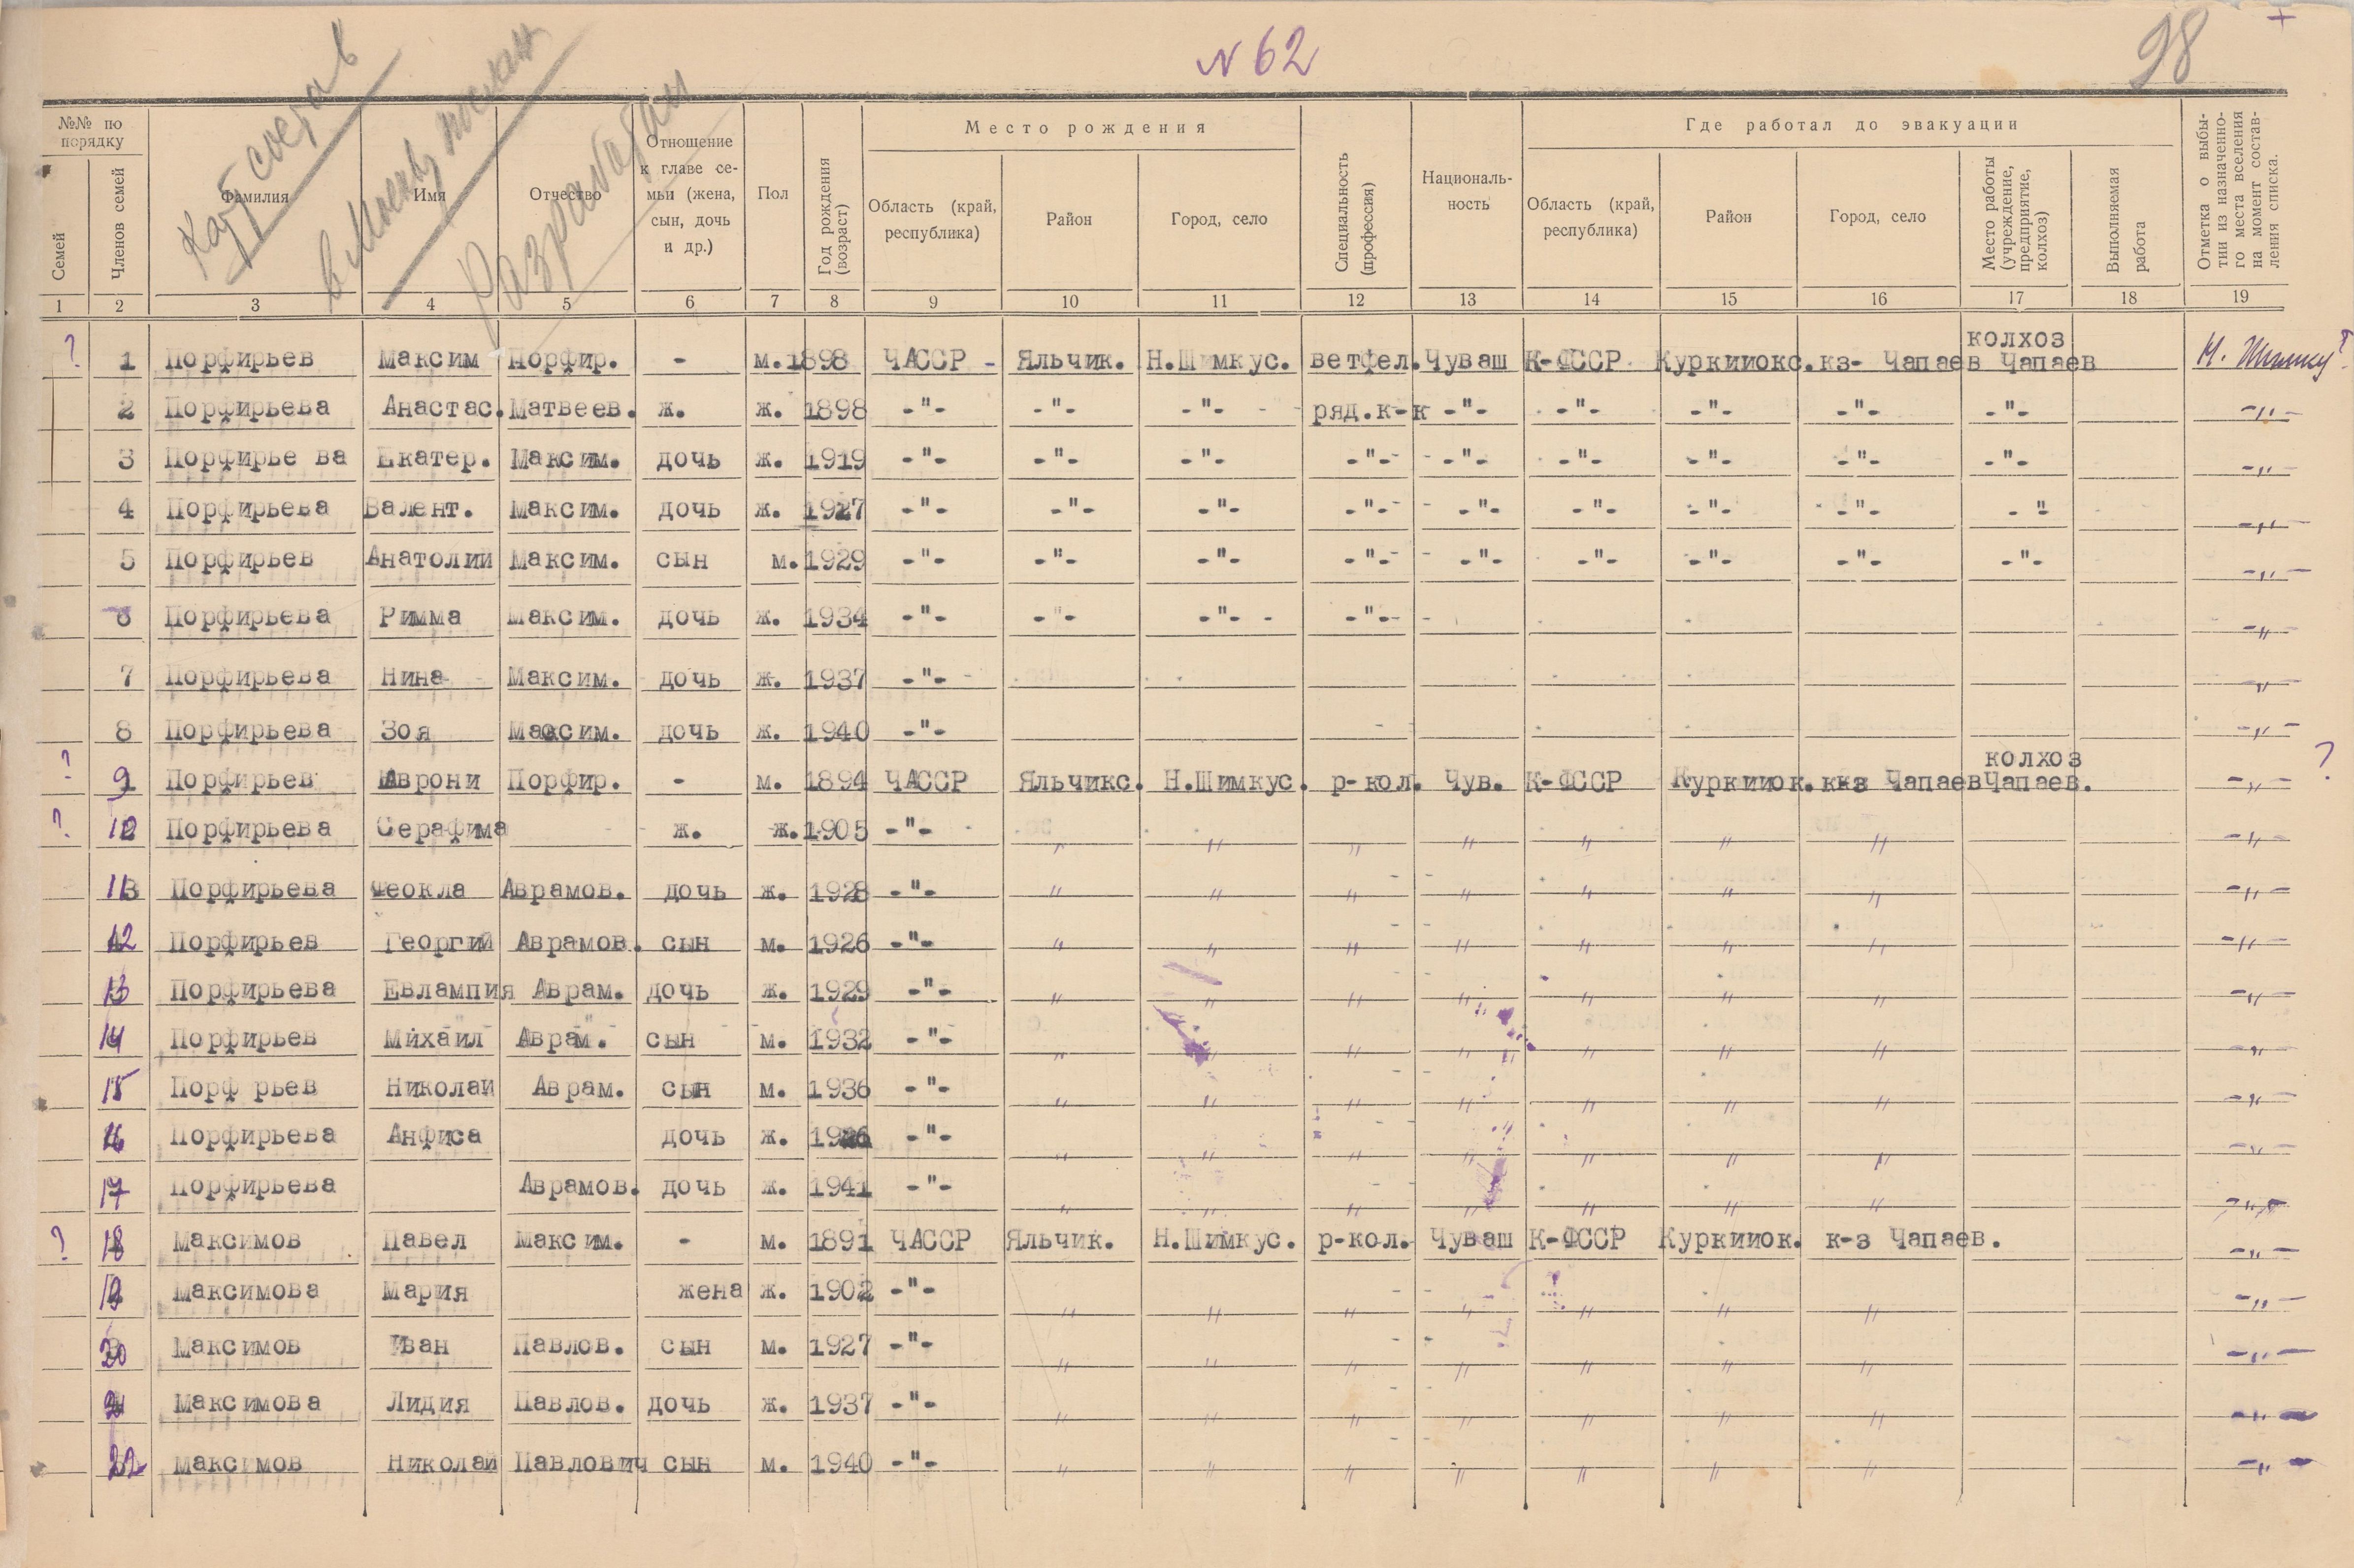 N 62
98
+
№№ по порядку
Место рождения
Где работал до эвакуации
Семей
Членов семей
Фамилия
Имя
Отчество
Отношение к главе семьи (жена, сын, дочь и др.)
Пол
Год рождения (возраст)
Область (край, республика)
Район
Город, село
Специальность (профессия)
Националь-ность
Область (край, республика)
Район
Город, село
Место работы (учреждение, предприятие, колхоз)
Выполняемая работа
Отметка о выбы-тии из назначенно-го места вселения на момент состав-ления списка.
1 2 3 4 5 6 7 8 9 10 11 12 13 14 15 16 17 18 19
колхоз
? 1 Порфирьев Максим Порфир. - м. 1898 ЧАССР - Яльчик. Н.Шимкус. ветфел. Чуваш К-ФССР Куркииокс. кз- Чапаев Чапаев Н. Шимку ?
2 Порфирьева Анастас. Матвеев. ж. ж. 1898 -"- -"- -"- ряд.к-к -"- -"- -"- -"- -"- -"-
3 Порфирье ва Екатер. Максим. дочь ж. 1919 -"- -"- -"- -"- -"- -"- -"- -"- -"- -"-
4 Порфирьева Валент. Максим. дочь ж. 1927 -"- -"- -"- -"- -"- -"- -"- -"- - " -"-
5 Порфирьев Анатолий Максим. сын м. 1929 -"- -"- -"- -"- -"- -"- -"- -"- -"- -"-
6 Порфирьева Римма Максим. дочь ж. 1934 -"- -"- -"- - -"- -"-
7 Порфирьева Нина Максим. дочь ж. 1937 -"- -"-
8 Порфирьева Зоя Максим. дочь ж. 1940 -"- -"-
колхоз
? 9 Порфирьев Аврони Порфир. - м. 1894 ЧАССР Яльчикс. Н.Шимкус. р-кол. Чув. К-ФССР Куркииок. к-з Чапаев Чапаев. -"- ?
? 10 Порфирьева Серафима ж. ж. 1905 -"- " " " " " " " -"-
11 Порфирьева Феокла Аврамов. дочь ж. 1928 -"- " " " " " " " -"-
12 Порфирьев Георгий Аврамов. сын м. 1926 -"- " " " " " " " -"-
13 Порфирьева Евлампия Аврам. дочь ж. 1929 -"- " " " " " " " -"-
14 Порфирьев Михаил Аврам. сын м. 1932 -"- " " " " " " " -"-
15 Порф рьев Николай Аврам. сын м. 1936 -"- " " " " " " " -"-
16 Порфирьева Анфиса дочь ж. -"- " " " " " " " -"-
17 Порфирьева Аврамов. дочь ж. 1941 -"- " " " " " " " -"-
? 18 Максимов Павел Максим. - м. 1891 ЧАССР Яльчик. Н.Шимкус. р-кол. Чуваш К-ФССР Куркииок. к-з Чапаев. -"-
19 Максимова Мария жена ж. 1902 -"- " " " " " " " -"-
20 Максимов Иван Павлов. сын м. 1927 -"- " " " " " " " -"-
21 Максимова Лидия Павлов. дочь ж. 1937 -"- " " " " " " " -"-
22 Максимов Николай Павлович сын м. 1940 -"- " " " " " " " -"-